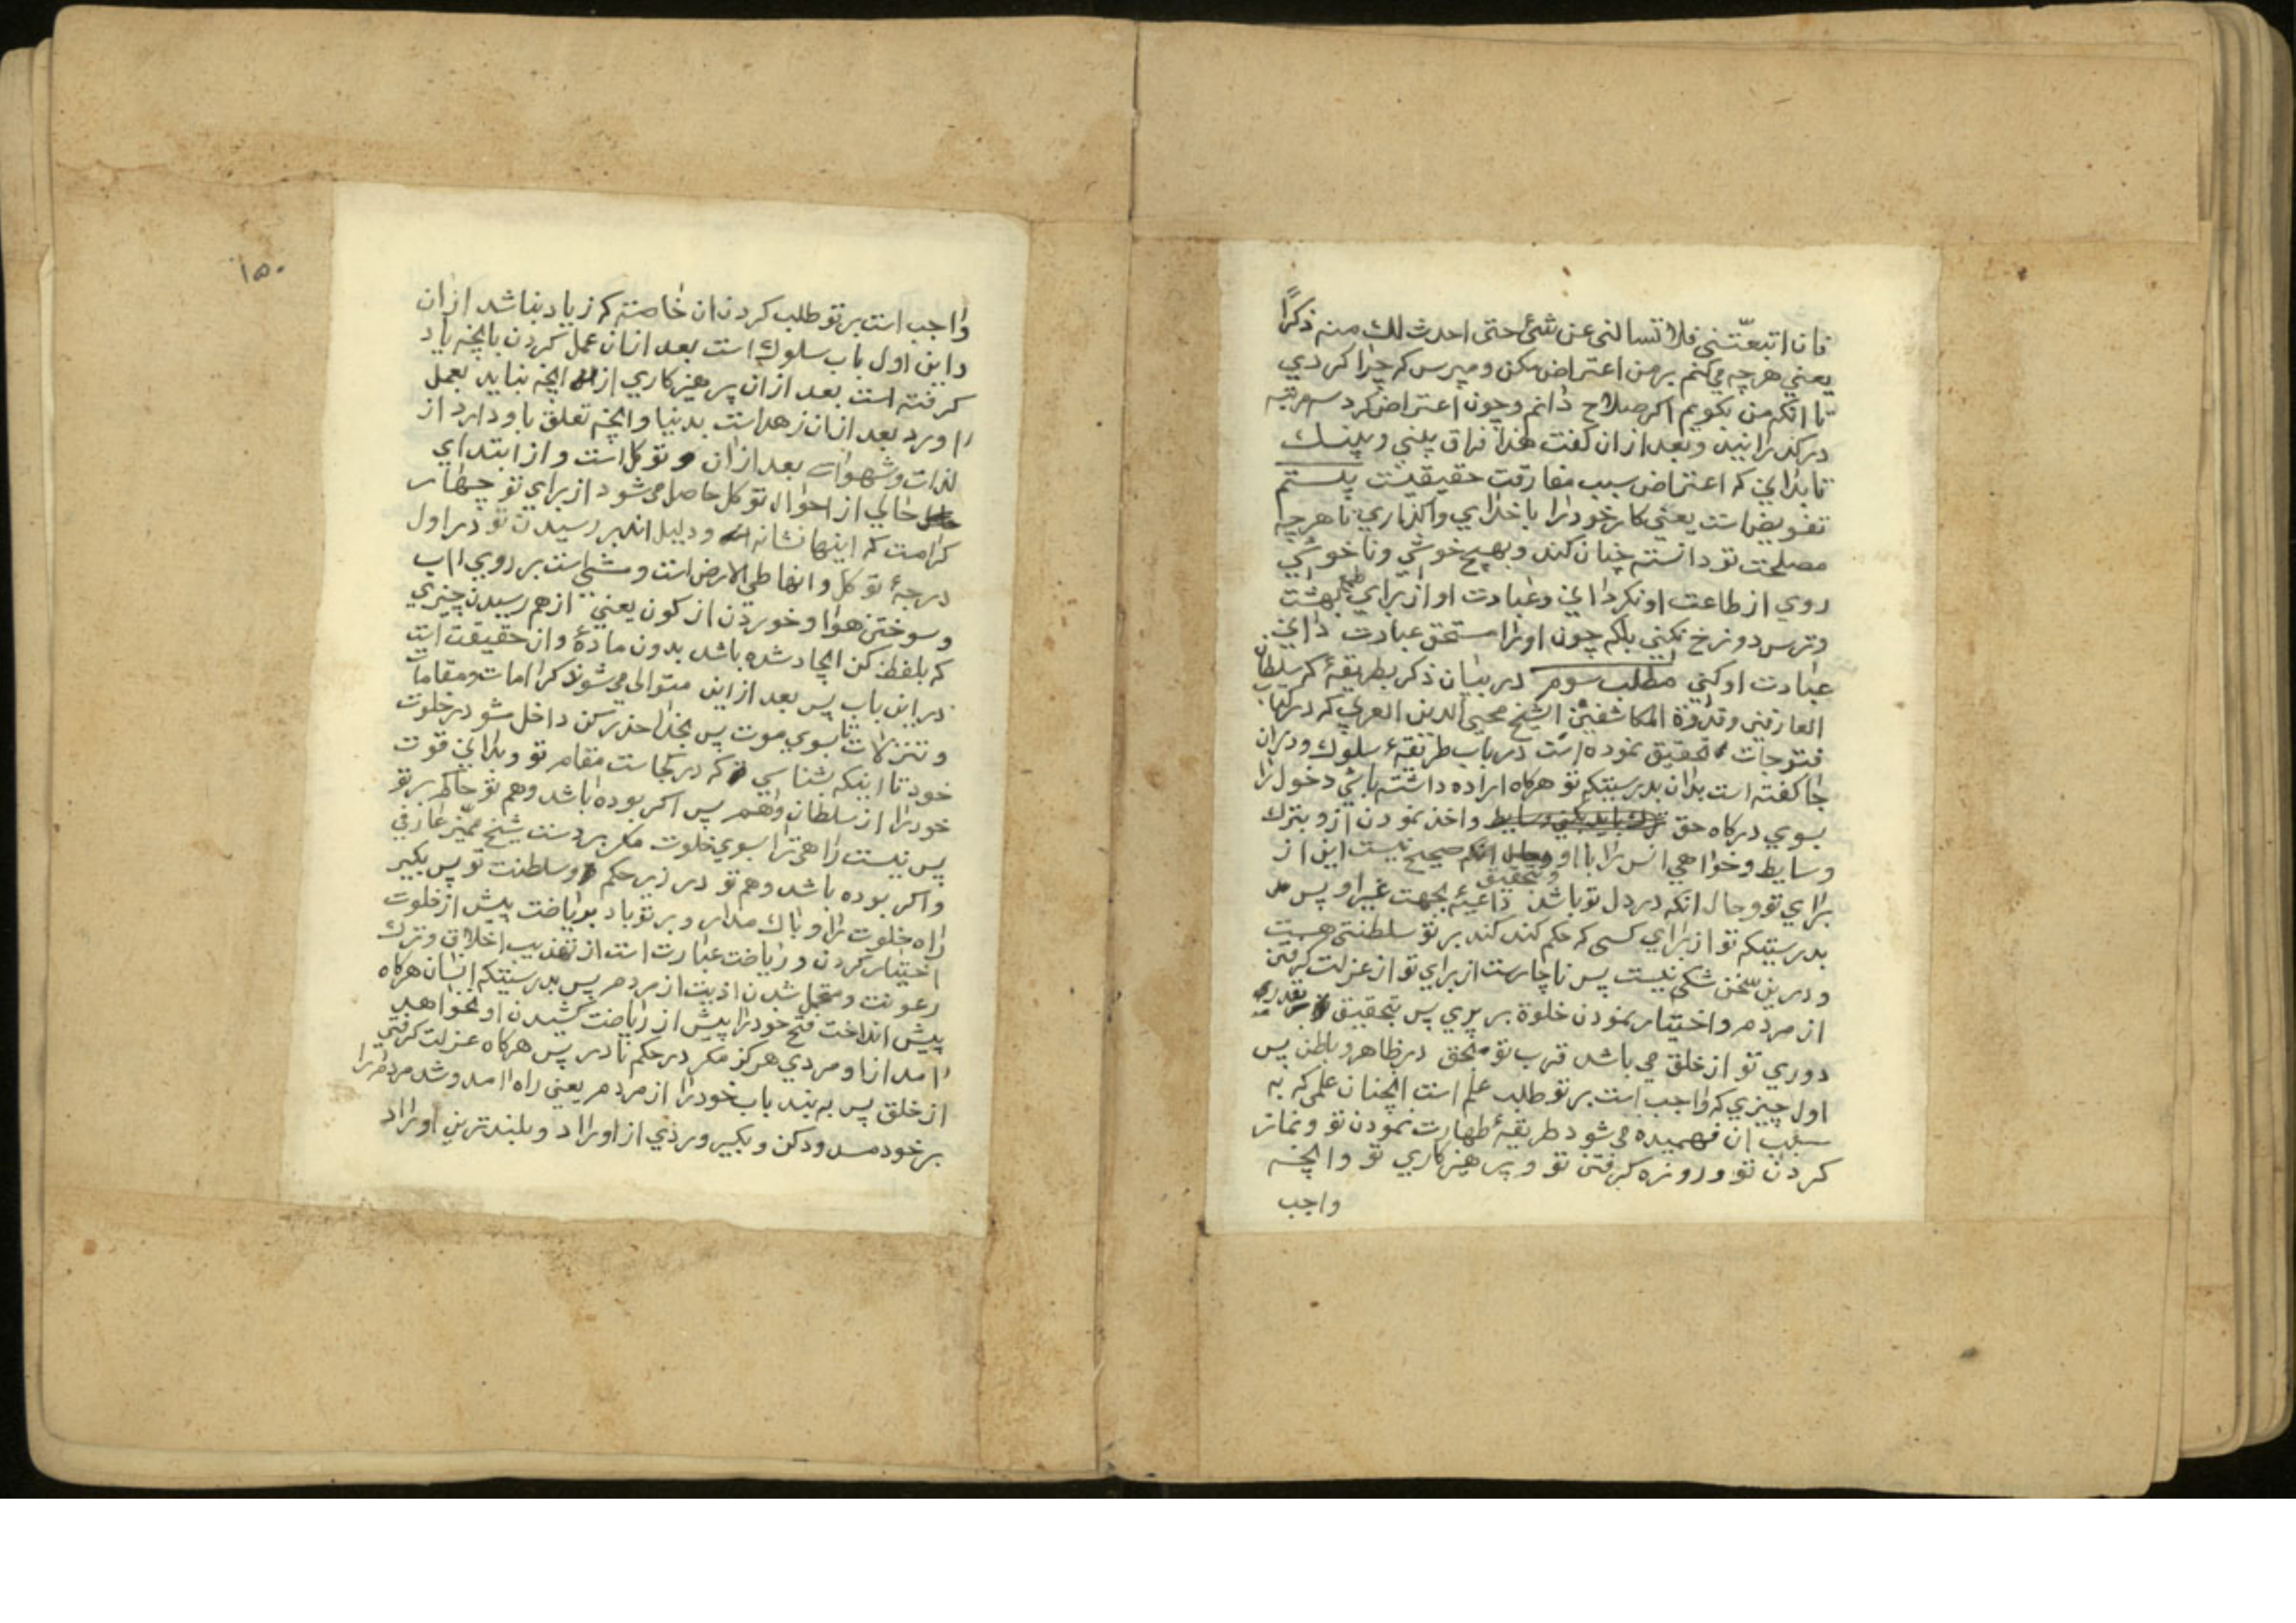 فان اتبعتنى فلا تسالنى عن شئ حتى احدث لك منه ذكرًا
يعني هرچه مي‌كنم بر من اعتراض مكن ومپرس كه چرا كردي
تا انكه من بكويم اكر صلاح دانم وچون اعتراض كرد سه مرتبه
دركذرانيد وبعد از ان كفت هذا فراق بيني وبينك
تا بداني كه اعتراض سبب مفارقت حقيقيست بيستم
تفويض است يعني كار خود را با خداي واكذاري تا هرچه
مصلحت تو دانسته چنان كند وبهيچ خوشي وناخوشي
روي از طاعت او نكرداني وعبادت او از براي طمع بهشت
وترس دوزخ نكني بلكه چون او را مستحق عبادت داني
عبادت او كني مطلب سوم در بيان ذكر بطريقهٔ كه سلطان
العارفين وقدوة المكاشفين الشيخ محيى الدين العربي كه در كتاب
فتوحات تحقيق نموده است در باب طريقهٔ سلوك ودران
جا كفته است بدان بدرستيكه تو هركاه اراده داشته باشي دخول را
بسوي دركاه حق واخذ نمودن ازو بترك
وسايط وخواهي انس را با او صحيح نيست اين از
براي تو وحال انكه در دل تو باشد داعيهٔ بجهت غير او پس
بدرستيكه تو از براي كسى كه حكم كند كند بر تو سلطنتى هست
ودرين سخن شكى نيست پس ناچارست از براي تو از عزلت كرفتن
از مردم واختيار نمودن خلوة بر پري پس بتحقيق بقدر
دوري تو از خلق مي باشد قرب تو بحق در ظاهر وباطن پس
اول چيزي كه واجب است بر تو طلب علم است انچنان علمى كه به
سبب ان فهميده مي شود طريقهٔ طهارت نمودن تو ونماز
كردن تو وروزه كرفتن تو وپرهيزكاري تو وانچه
واجب
١٥٠
واجب است بر تو طلب كردن ان خاصته كه زياد نباشد از ان
واين اول باب سلوك است بعد ازان عمل كردن بانچه ياد
كرفته است بعد از ان پرهيزكاري از انچه نبايد بعمل
اورد بعد ازان زهد است بدنيا وانچه تعلق باو دارد از
لذات وشهوات بعد ازان توكل است واز ابتداي
حالي از احوال توكل حاصل مي شود از براي تو چهار
كرامت كه اينها نشانه ودليل اند بر رسيدن تو در اول
درجهٔ توكل وانها طي الارض است ومشي است بر روي اب
وسوختن هوا وخوردن از كون يعني از هم رسيدن چيزي
كه بلفظ كن ايجاد شده باشد بدون مادهٔ وان حقيقت است
در اين باب پس بعد از اين متوالي مي شوند كرامات ومقامات
وتنزلات تا بسوي موت پس بخدا حذر كن داخل مشو در خلوت
خود تا اينكه بشناسي كه در كجاست مقام تو وبداني قوت
خود را از سلطان وهم پس اكر بوده باشد وهم تو حاكم بر تو
پس نيست راهى ترا بسوي خلوت مكر بر دست شيخ مميز عارفي
واكر بوده باشد وهم تو در زير حكم وسلطنت تو پس بكير
راه خلوت را وباك مدار وبر تو باد برياضت پيش از خلوت
اختيار كردن ورياضت عبارت است از تهذيب اخلاق وترك
رعونت ومتحمل شدن اذيت از مردم پس بدرستيكه انسان هركاه
پيش انداخت فتح خود را پيش از رياضت كشيدن او نخواهد
امد از او مردي هركز مكر در حكم نادر پس هركاه عزلت كرفتي
از خلق پس به بند باب خود را از مردم يعني راه امد وشد مردم را
بر خود مسدود كن وبكير وردي از اوراد وبلندترين اوراد